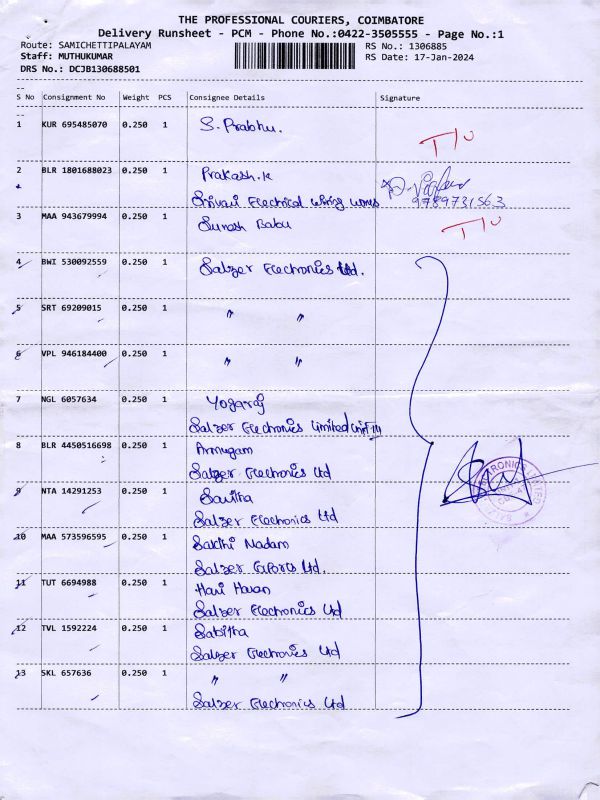 THE PROFESSIONAL COURIERS, COIMBATORE
Delivery Runsheet - PCM - Phone No.:0422-3505555 - Page No.:1
Route: SAMICHETTIPALAYAM RS No.: 1306885
Staff: MUTHUKUMAR RS Date: 17-Jan-2024
DRS No.: DCJB130688501
S No Consignment No Weight PCS Consignee Details Signature
1 KUR 695485070 0.250 1 S. Prabhu.
2 BLR 1801688023 0.250 1 Prakash.k
Srivari Electrical wiring works 9789731563
3 MAA 943679994 0.250 1 Suresh Babu
4 BWI 530092559 0.250 1 Salzer Electronics Ltd.
5 SRT 69209015 0.250 1 " "
6 VPL 946184400 0.250 1 " "
7 NGL 6057634 0.250 1 Yogaraj
Salzer Electronics Limited Unit
8 BLR 4450516698 0.250 1 Arumugam
Salzer Electronics Ltd
9 NTA 14291253 0.250 1 Savitha
Salzer Electronics Ltd
10 MAA 573596595 0.250 1 Sakthi Madam
Salzer Ltd.
11 TUT 6694988 0.250 1 Hari Haran
Salzer Electronics Ltd
12 TVL 1592224 0.250 1 Sabitha
Salzer Electronics Ltd
13 SKL 657636 0.250 1 " "
Salzer Electronics Ltd